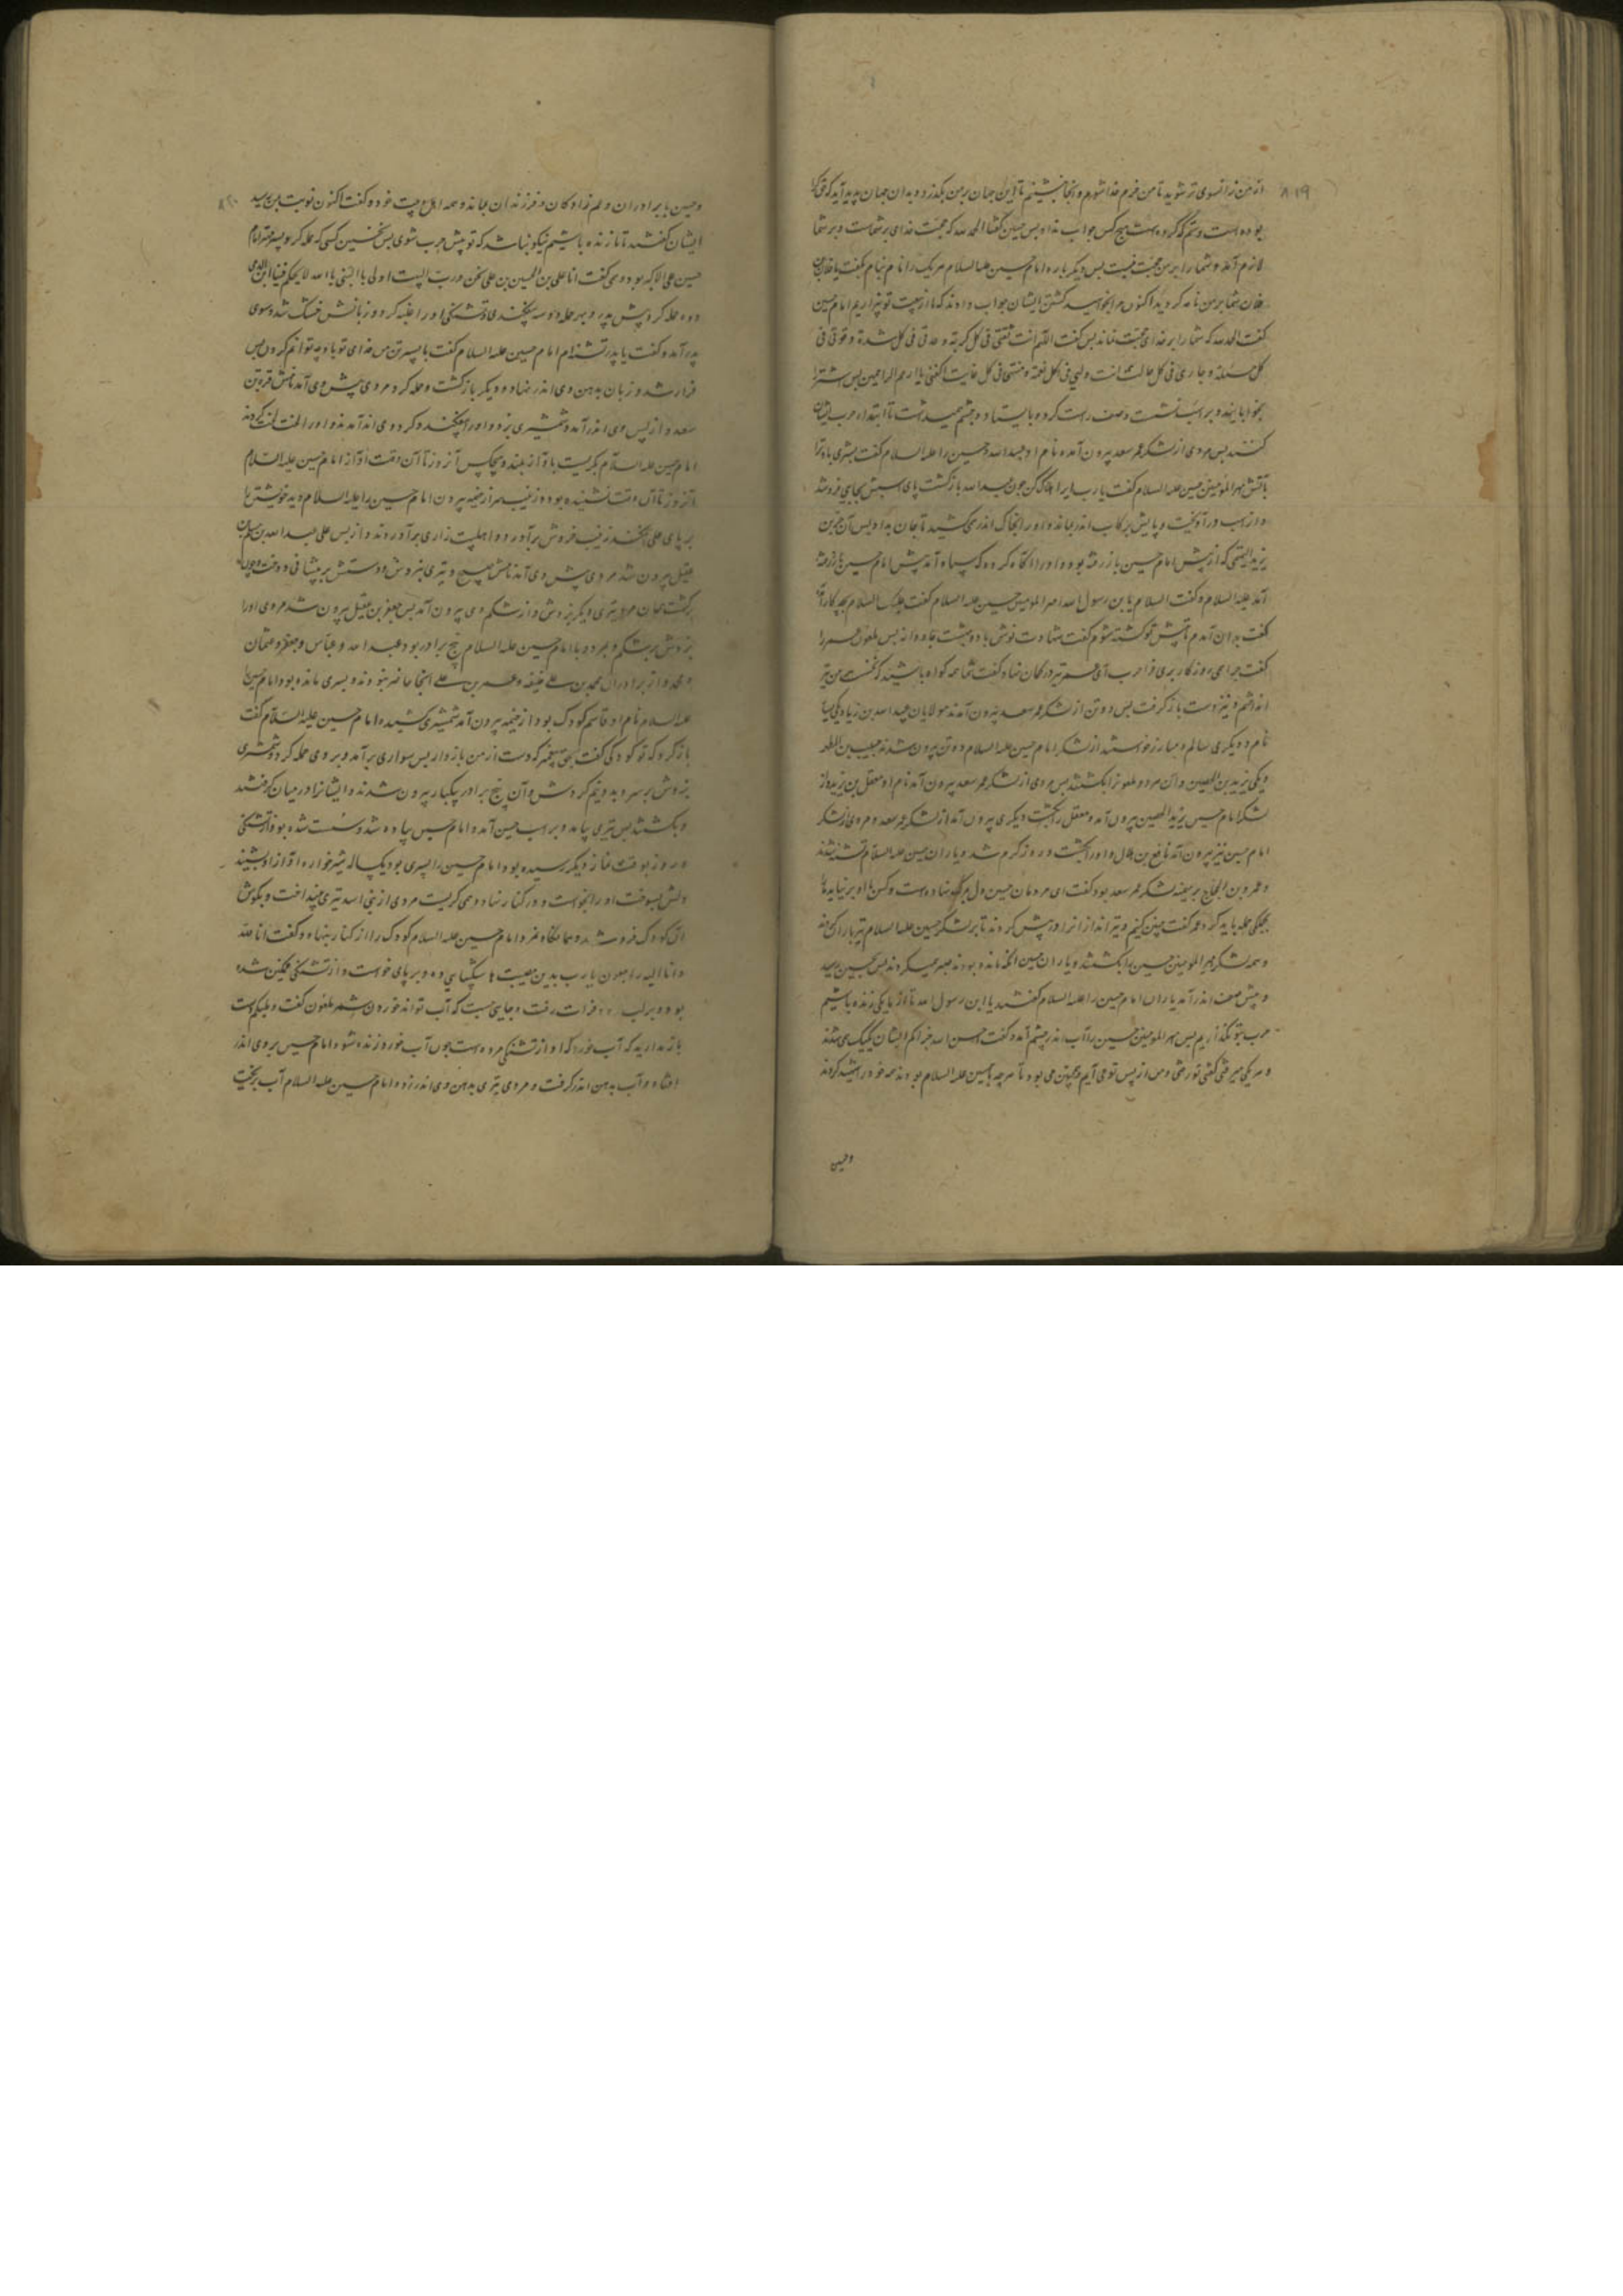 ۸۱۹
از من زانسوی تر شوید تا من حرم خدا شوم و آنجا بنشینم تا این جهان بر من بگذرد و بدان جهان پدید آید که حق کرا
بوده است و ستم که کرده است هیچ کس جواب نداد پس حسین گفتا الحمد لله که حجت خدای بر شماست و بر شما
لازم آمد و شما را بر من حجت نیست پس دیگر باره امام حسین علیه السلام هر یک را نام بنام بگفت یا فلان
فلان شما بر من نامه کردید اکنون مرا بخواهید کشتن ایشان جواب دادند که ما از بیعت تو بیزاریم امام حسین
گفت الحمد لله که شما را بر خدای حجت نماند پس گفت اللهم انت ثقتی فی کل کربة و عدتی فی کل شدة و قوتی فی
کل مسئلة و جاری فی کل حالت انت ولیی فی کل نعمة و منتهی فی کل غایت اکفنی یا ارحم الراحمین پس اشتر را
بخوابانید و بر اسب نشست و صف راست کرد و بایستاد و چشم همیداشت تا ابتداء حرب ایشان
کنند پس مردی از لشکر عمر سعد بیرون آمد و نام او عبدالله و حسین را علیه السلام گفت بشری باد ترا
بآتش امیر المومنین حسین علیه السلام گفت یا رب این را هلاک کن چون عبدالله بازگشت پای اسبش بجایی فرو شد
و از اسب در آویخت و پایش برکاب اندر بماند و او را بخاک اندر می کشید تا جان بداد پس آن حر بن
یزید التمیمی که از پیش امام حسین باز رفته بود و او را آگاه کرده که سپاه آمد پیش امام حسین باز رفت
آمد علیه السلام و گفت السلام یا بن رسول الله امیر المومنین حسین علیه السلام گفت علیک السلام بچه کار آمدی
گفت بدان آمدم تا پیش تو کشته شوم گفت شهادت نوش باد و بهشت جاودانه پس ملعون عمر را
گفت چرا می روزگار بری فرا حرب آی عمر تیر در کمان نهاد گفت شما همه گواه باشید که نخست من تیر
انداختم و نیز دست باز گرفت پس دو تن از لشکر عمر سعد بیرون آمدند مولایان عبیدالله بن زیاد یکی یسار
نام و دیگری سالم و مبارز خواستند از لشکر امام حسین علیه السلام دو تن بیرون شدند حبیب بن المظهر
و یکی یزید بن الحصین و آن هر دو ملعون را بکشتند پس مردی از لشکر عمر سعد بیرون آمد نام او معقل بن یزید و از
لشکر امام حسین یزید الحصین بیرون آمد و معقل را بکشت دیگری بیرون آمد از لشکر عمر سعد و مردی از لشکر
امام حسین نیز بیرون آمد نافع بن هلال و او را بکشت و روز گرم شد و یاران حسین علیه السلام تشنه شدند
و عمرو بن الحجاج بر میمنه لشکر عمر سعد بود گفت ای مردمان حسین دل بر مرگ نهاده است و کس با او بر نیاید
بجملگی حمله باید کرد عمر گفت چنین کنیم و تیراندازان را در پیش کردند تا بر لشکر حسین علیه السلام تیرباران کردند
و همه لشکر امیر المومنین حسین را بکشتند و یاران حسین آنکه مانده بودند صبر میکردند پس حسین برسید
و پیش صف اندر آمد یاران امام حسین را علیه السلام گفتند یا ابن رسول الله تا از ما یکی زنده باشیم
حرب بتو نگذاریم پس امیر المومنین حسین را آب اندر چشم آمد و گفت احسن الله جزاکم ایشان یکیک می شدند
و هر یکی میرفتی گفتی تو رفتی و من از پس تو می آیم و همچنین می بود تا هر چه با حسین علیه السلام بودند همه خود را شهید کردند
وحسین
۸۲۰
وحسین با برادران و عم زادگان و فرزندان بماند و همه اهل بیت خود و گفت اکنون نوبت بمن رسید
ایشان گفتند تا ما زنده باشیم نیکو نباشد که تو پیش حرب شوی پس نخستین کسی که حمله کرد پسر مهتر امام
حسین علی الاکبر بود و می گفت انا علی بن الحسین بن علی نحن و رب البیت اولی بالنبی تالله لا یحکم فینا ابن الدعی
ده حمله کرد پیش پدر و بهر حمله دو سه بیفکندی و تشنگی او را غلبه کرد و زبانش خشک شد و سوی
پدر آمد و گفت یا پدر تشنه ام امام حسین علیه السلام گفت یا پسر تن من فدای تو باد چه توانم کردن پس
فراز شد و زبان بدهن وی اندر نهاد و دیگر بازگشت و حمله کرد مردی پیش وی آمد نامش مرة بن
سعد و از پس وی اندر آمد و شمشیری بزد و او را بیفکند و گرد وی اندر آمدند و او را لخت لخت کردند
امام حسین علیه السلام بگریست با واز بلند و هیچکس آنروز تا آن وقت آواز امام حسین علیه السلام
تا آنروز تا آن وقت نشنیده بود و زینب از خیمه بیرون امام حسین را علیه السلام دید خویشتن را
بر پای علی افکند زینب خروش برآورد و اهلبیت زاری برآوردند و از پس علی عبدالله بن مسلم بن
عقیل بیرون شد مردی پیش وی آمد نامش صبیح و تیری بزدش و دستش بر پیشانی دوخت و چون
برگشت همان مرد تیری دیگر بزدش و از شکم وی بیرون آمد پس جعفر بن عقیل بیرون شد مردی او را
بزدش بر شکم و بمرد و با امام حسین علیه السلام پنج برادر بود عبدالله و عباس و جعفر و عثمان
و محمد و از برادران محمد بن علی حنیفه و عمر بن علی اینجا حاضر نبودند و پسری مانده بود امام حسین را
علیه السلام نام او قاسم کودک بود از خیمه بیرون آمد شمشیری کشیده امام حسین علیه السلام گفت
بازگرد که تو کودکی گفت بحق پیغمبر که دست از من بازدار پس سواری برآمد و بر وی حمله کرد و شمشیری
بزدش بر سر و بدو نیم کردش و آن پنج برادر یکبار بیرون شدند و ایشانرا در میان گرفتند
و بکشتند پس تیری بیامد و بر اسب حسین آمد و امام حسین پیاده شد و سست شده بود از تشنگی
و روز بوقت نماز دیگر رسیده بود و امام حسین را پسری بود یکساله شیرخواره آواز او بشنید
دلش بسوخت او را بخواست و در کنار نهاد و می گریست مردی از بنی اسد تیری بینداخت و بگوش
آن کودک فرو شد و همانگاه بمرد امام حسین علیه السلام کودک را از کنار بنهاد و گفت انا لله
و انا الیه راجعون یا رب بدین مصیبت ها شکیبایی ده و بر پای خواست و از تشنگی غمگین شده
بود و بر لب فرات رفت و جایی جست که آب تواند خوردن شمر ملعون گفت ویلکم است
باز مدارید که آب خورد که او از تشنگی مرده است چون آب خورد زنده شود امام حسین بر وی اندر
افتاد و آب بدهن اندر گرفت و مردی تیری بدهن وی اندر زد و امام حسین علیه السلام آب بریخت